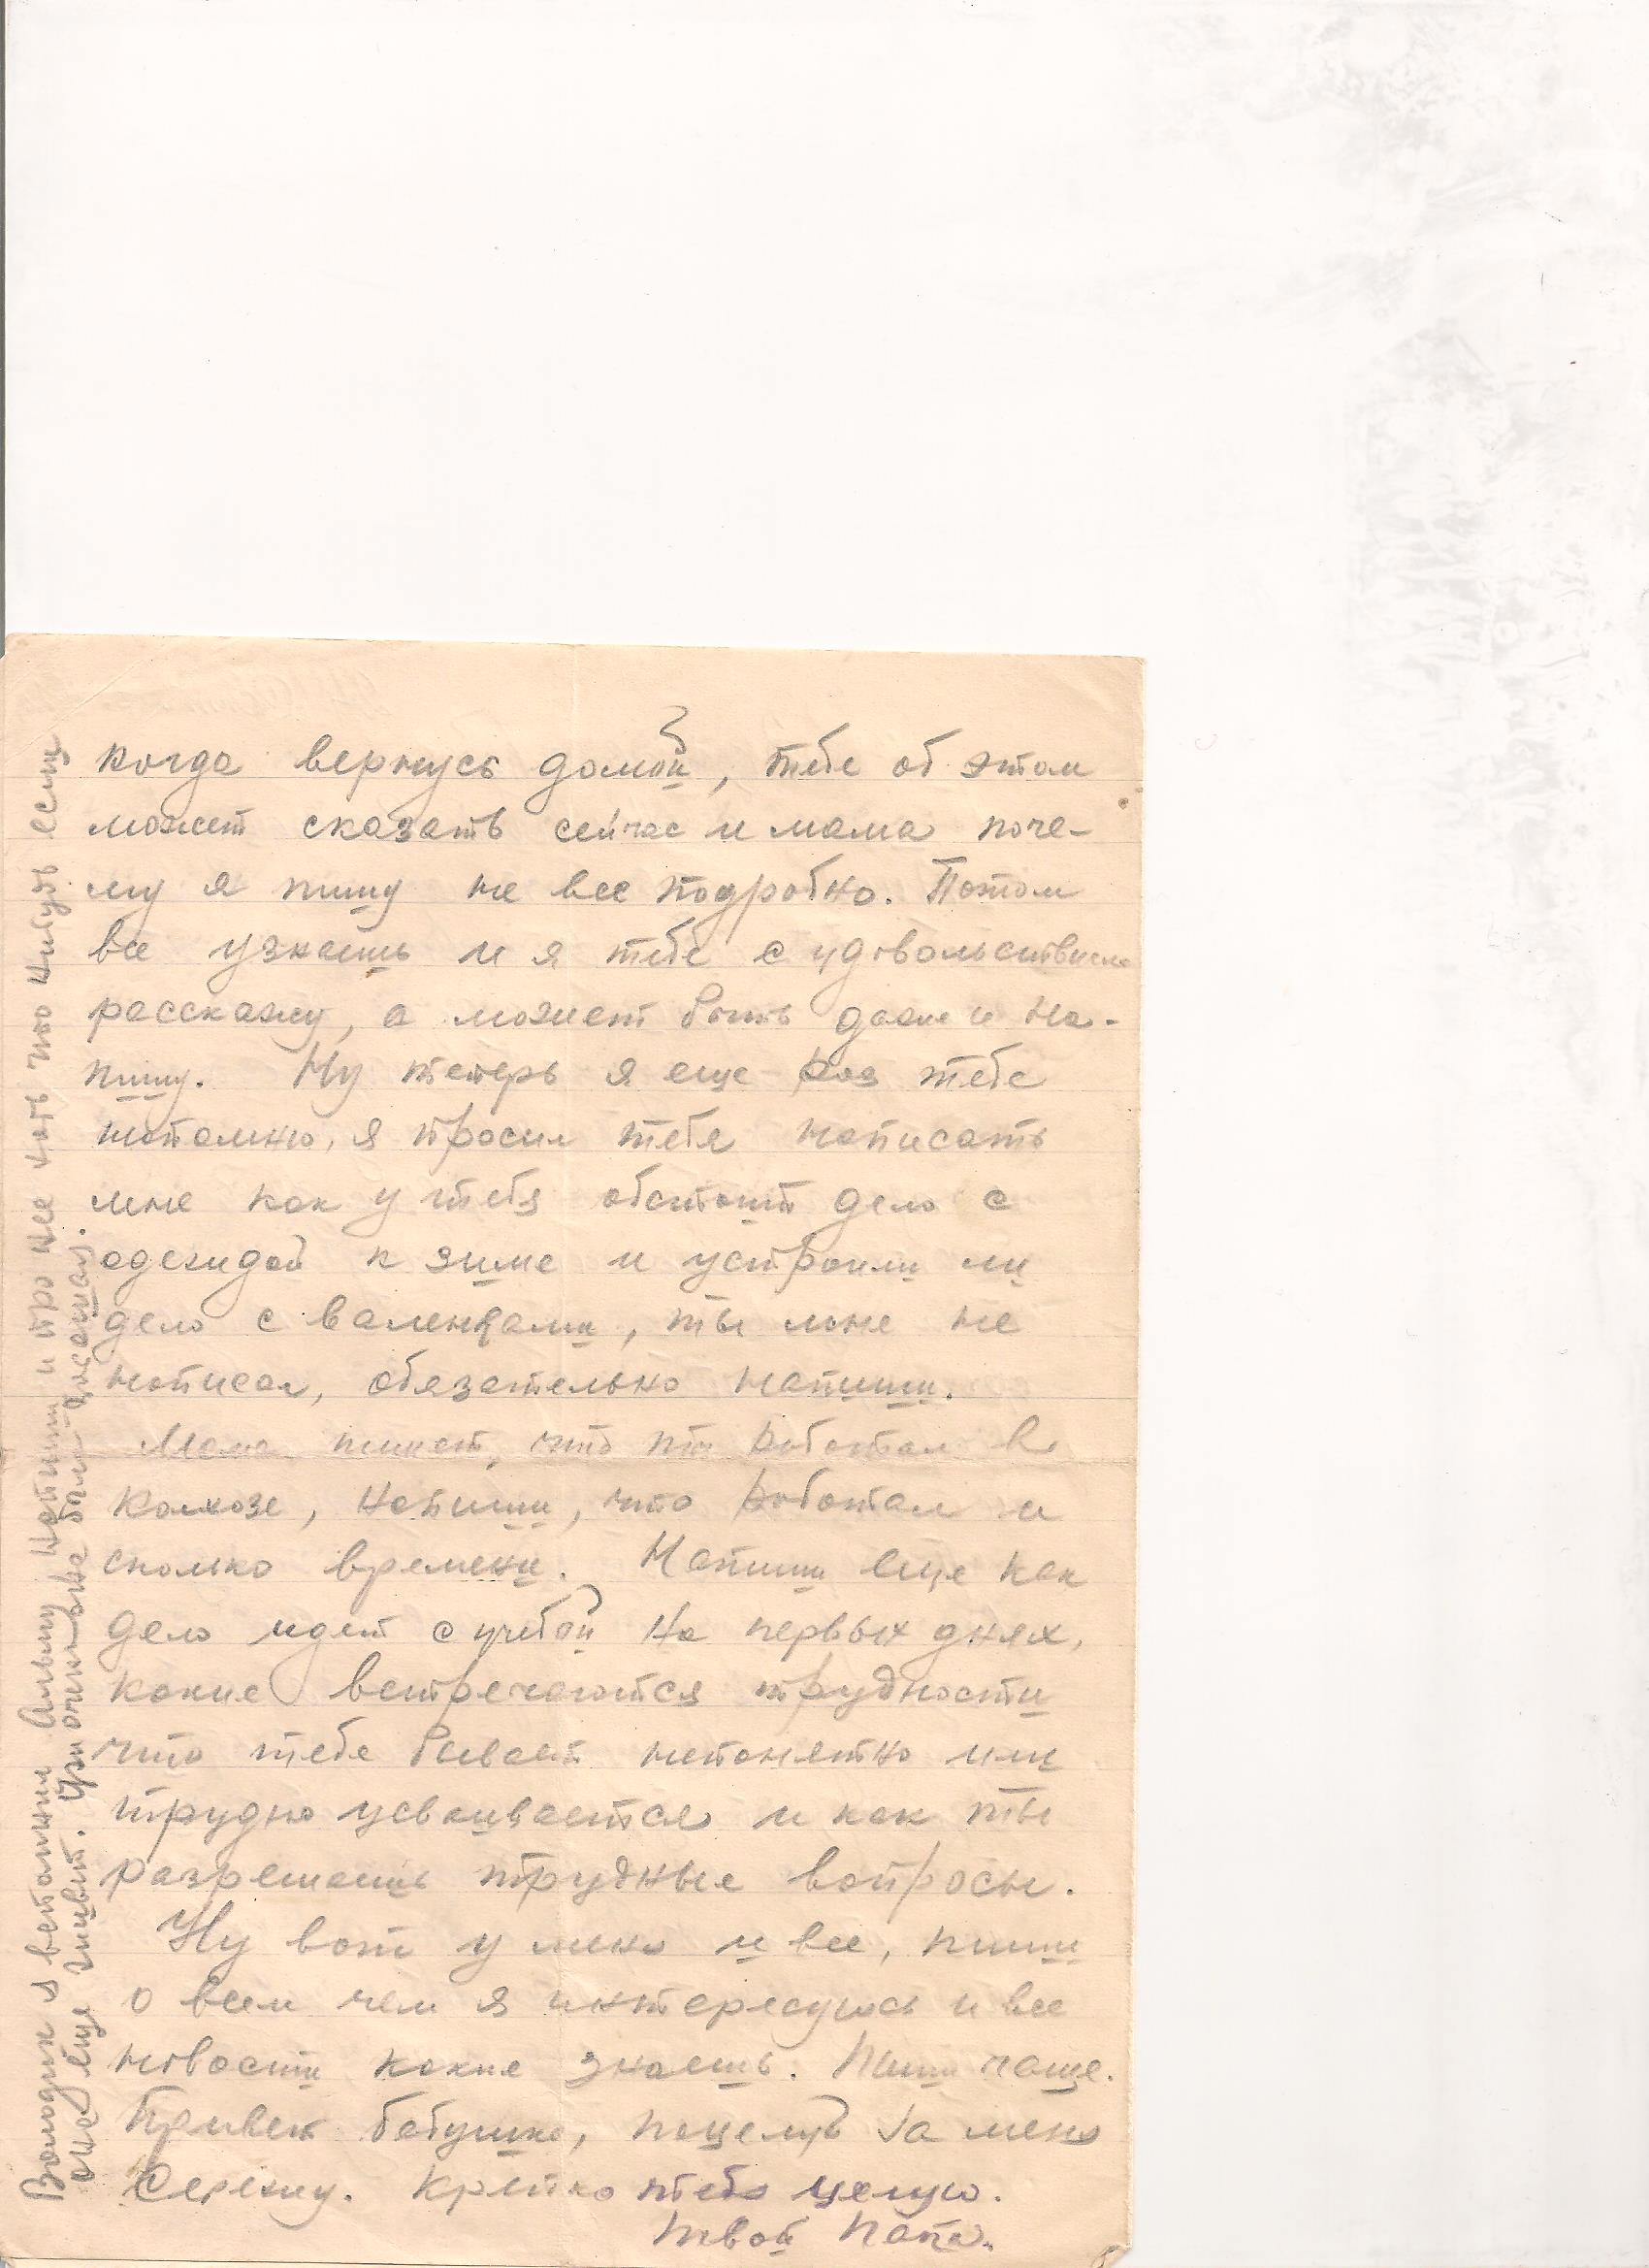 когда вернусь домой, тебе об этом
может сказать сейчас и мама поче-
му я пишу не все подробно. Потом
все узнаешь и я тебе с удовольствием
расскажу, а может быть даже и на-
пишу. Ну теперь я еще раз тебе
напомню, я просил тебя написать
мне как у тебя обстоит дело с
одеждой к зиме и устроили ли
дело с валенками, ты мне не
написал, обязательно напиши.
Мама пишет, что ты работал в
колхозе, напиши, что работал и
сколько времени. Напиши еще как
дело идет с учебой на первых днях,
какие встречаются трудности
что тебе бывает непонятно или
трудно усваивается и как ты
разрешаешь трудные вопросы.
Ну вот у меня и все, пиши
о всем чем я интересуюсь и все
новости какие знаешь. Пиши чаще.
Привет бабушке, поцелуй за меня
Сережу. Крепко тебя целую.
Твой Папа.
Володик я вспомнил Альму напиши и про нее хоть что нибудь если
она еще живет. Фотокарточки бы послал.